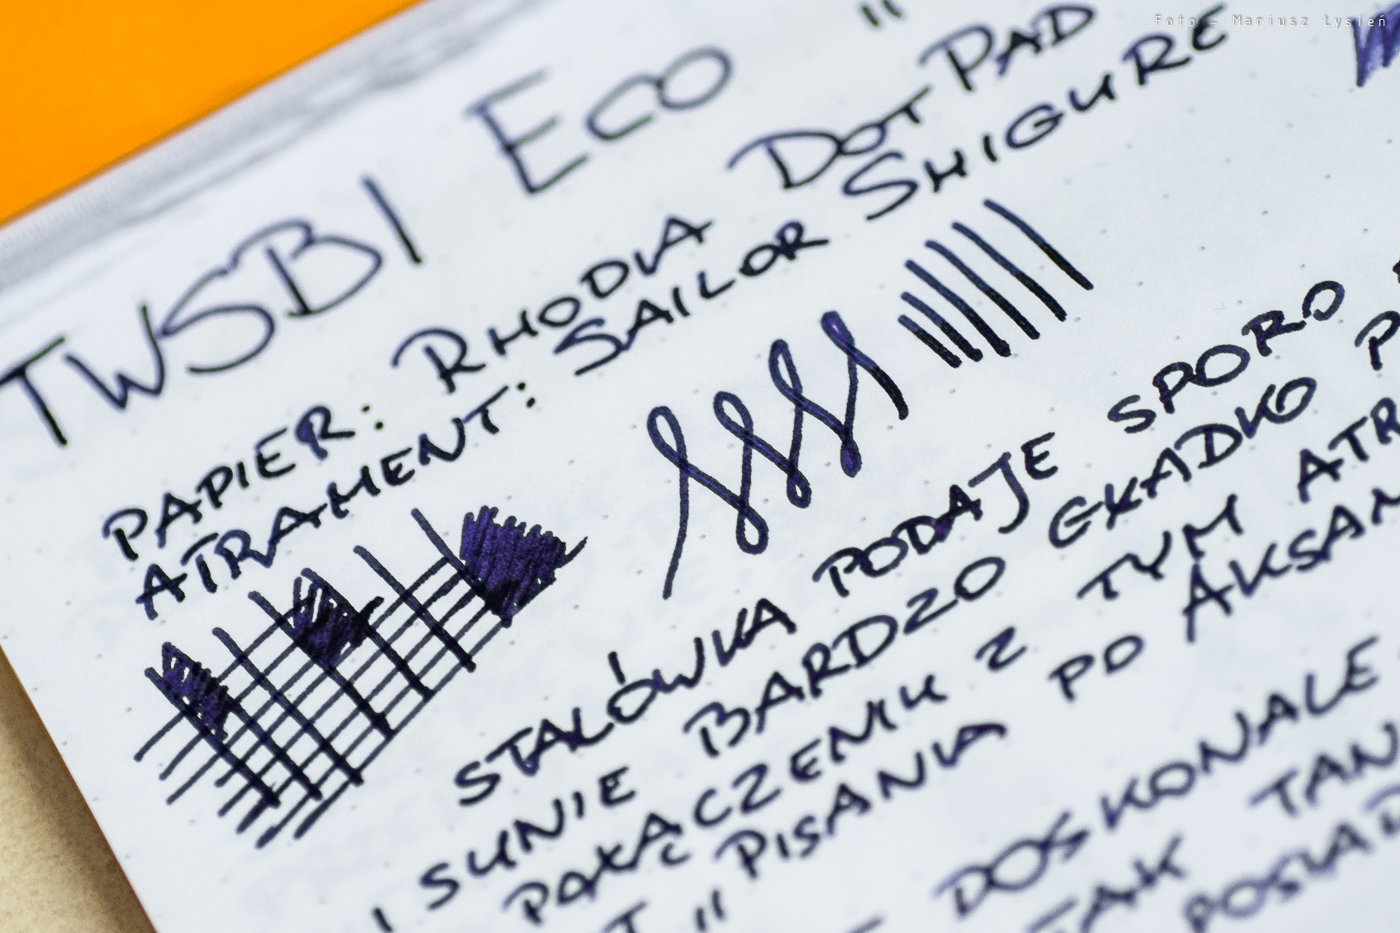 Foto - Mariusz Łysień
TWSBI ECO "
PAPIER: RHODIA DOT PAD
ATRAMENT: SAILOR SHIGURE
STALÓWKA PODAJE SPORO
I SUNIE BARDZO GŁADKO
POŁĄCZENIU Z TYM ATR
" PISANIA PO AKSAM
DOSKONALE
TAK TAN
POSIAD